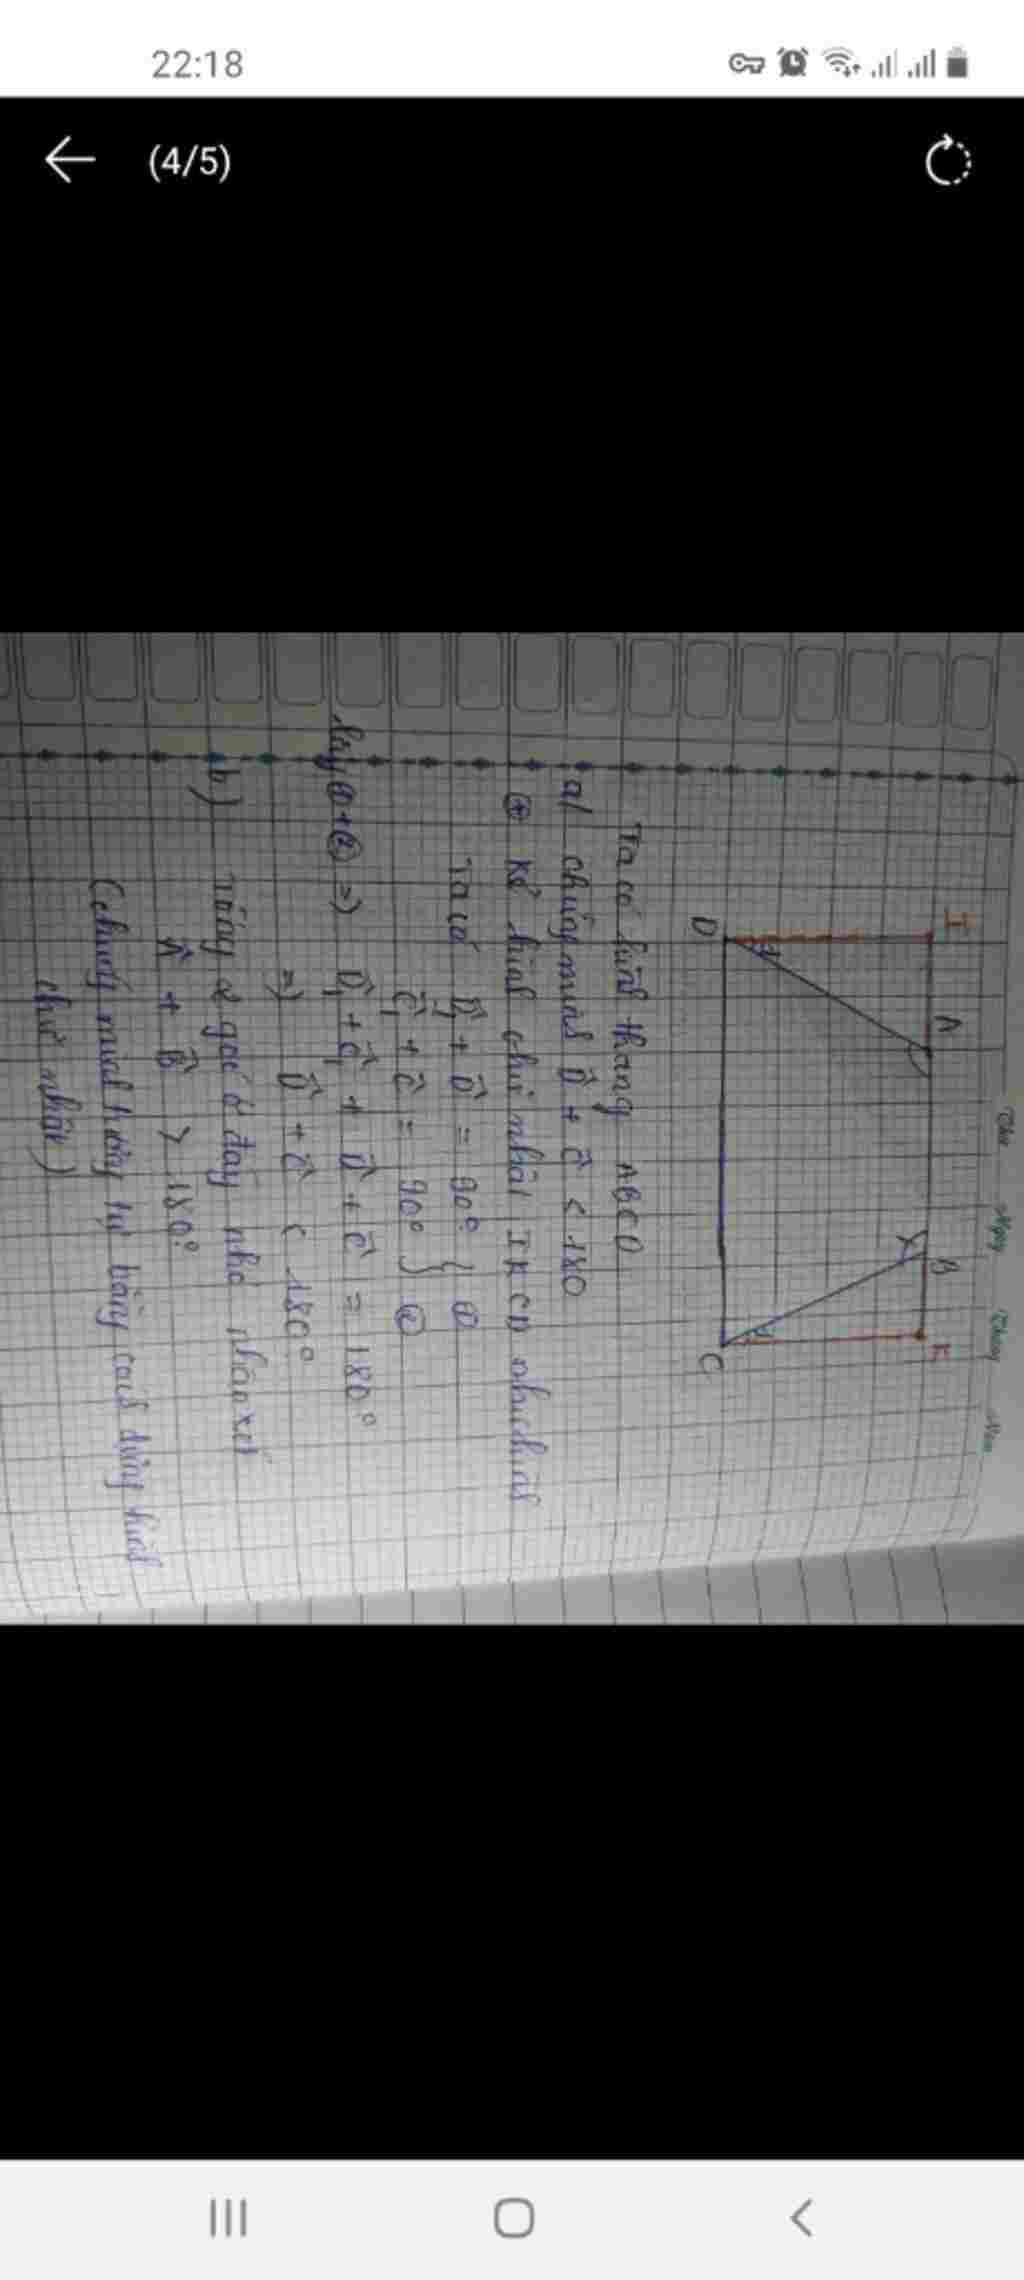 22:18
(4/5)
Thứ Ngày Tháng Năm
I A B K
D C
Ta có hình thang ABCD
a/ chứng minh D̂ + Ĉ < 180
⊕ Kẻ hình chữ nhật IKCD như hình
Ta có D̂₁ + D̂ = 90° } ①
Ĉ₁ + Ĉ = 90° } ②
Lấy ① + ② => D̂₁ + Ĉ₁ + D̂ + Ĉ = 180°
=> D̂ + Ĉ < 180°
b) Tổng 2 góc ở đáy nhỏ nhận xét
Â + B̂ > 180°
(chứng minh tương tự bằng cách dựng hình
chữ nhật)